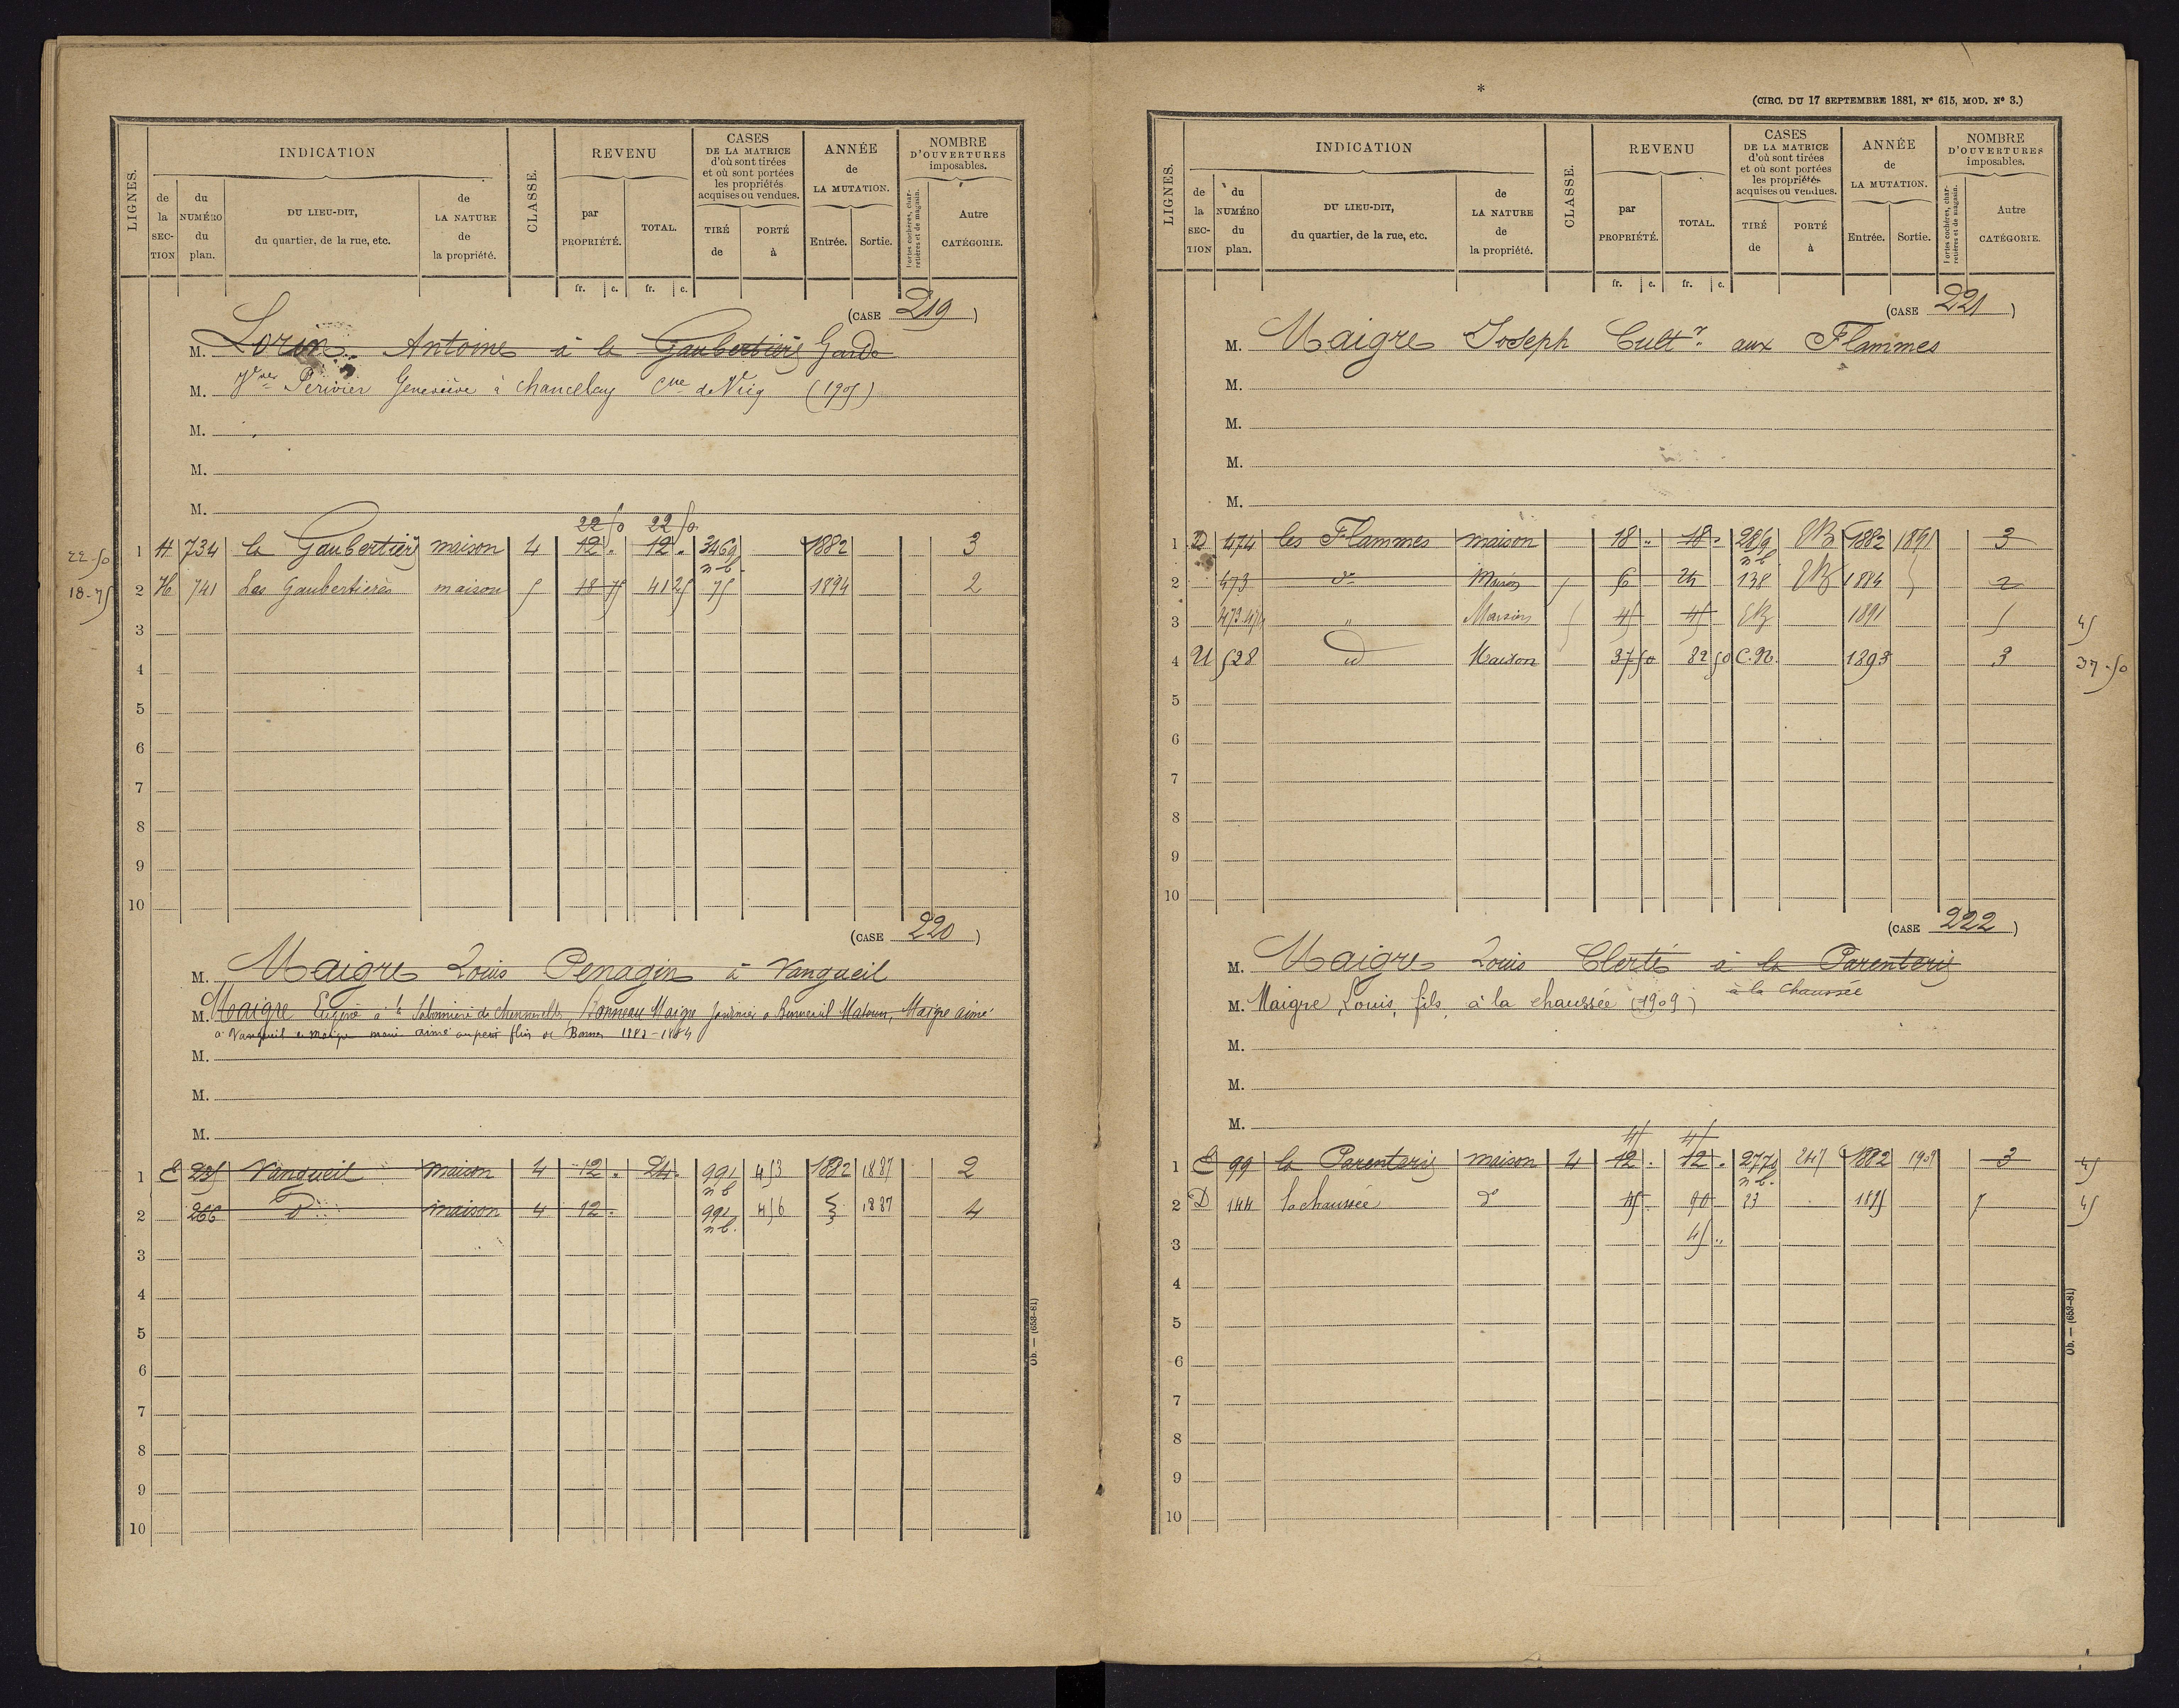 LIGNES.
INDICATION
CLASSE.
REVENU
CASES
DE LA MATRICE
d'où sont tirées
et où sont portées
les propriétés
acquises ou vendues.
ANNÉE
de
LA MUTATION.
NOMBRE
D'OUVERTURES
imposables.
de
la
SEC-
TION
du
NUMÉRO
du
plan.
DU LIEU-DIT,
du quartier, de la rue, etc.
de
LA NATURE
de
la propriété.
par
PROPRIÉTÉ.
TOTAL.
TIRÉ
de
PORTÉ
à
Entrée.
Sortie.
Portes cochères, char-
retières et de magasin.
Autre
CATÉGORIE.
fr. c. fr. c.
(CASE 219)
M. Lorin Antoine à la Gaubertière Garde
M. Périvier Geneviève à (1905)
M.
M.
M.
22 50 22 50
22-50 1 H 734 la Gaubertière maison 4 12 . 12 . 3469 1882 3
n b.
18-75 2 H 741 Les Gaubertières maison 5 18 75 41 25 75 1894 2
3
4
5
6
7
8
9
10
(CASE 220)
M. Maigre Louis Penagin à Vangueil
M. Maigre Eugène à la de Bonneau Maigre à Maigre aimé
à Vangueil 1883-1884
M.
M.
M.
1 E 235 Vangueil maison 4 12 . 24 . 991 453 1882 1887 2
n b
2 266 d° maison 4 12 . 991 456 1887 4
n b.
3
4
5
6
7
8
9
10
Ob. — (653-81)
*
(CIRC. DU 17 SEPTEMBRE 1881, N° 615, MOD. N° 3.)
LIGNES.
INDICATION
CLASSE.
REVENU
CASES
DE LA MATRICE
d'où sont tirées
et où sont portées
les propriétés
acquises ou vendues.
ANNÉE
de
LA MUTATION.
NOMBRE
D'OUVERTURES
imposables.
de
la
SEC-
TION
du
NUMÉRO
du
plan.
DU LIEU-DIT,
du quartier, de la rue, etc.
de
LA NATURE
de
la propriété.
par
PROPRIÉTÉ.
TOTAL.
TIRÉ
de
PORTÉ
à
Entrée.
Sortie.
Portes cochères, char-
retières et de magasin.
Autre
CATÉGORIE.
fr. c. fr. c.
(CASE 221)
M. Maigre Joseph Cultr. aux Flammes
M.
M.
M.
M.
1 D 474 les Flammes maison 18 . 18 . 1882 1891 3
n b.
2 473 d° Maison 5 6 24 138 1884 2
3 473.474 " Maison 5 45 45 1891 5 45
4 U 528 d Maison 37 50 82 50 C.N. 1893 3 37-50
5
6
7
8
9
10
(CASE 222)
M. Maigre Louis Clerté à la Parenterie
à la Chaussée
M. Maigre Louis, fils, à la chaussée (1909)
M.
M.
M.
45 45
1 E 99 la Parenterie maison 4 12 . 12 . 2770 247 1882 1909 3 45
n b.
2 D 144 la chaussée d° 45 . 90 23 1895 7 45
3 45 ..
4
5
6
7
8
9
10
Ob. — (653-81)